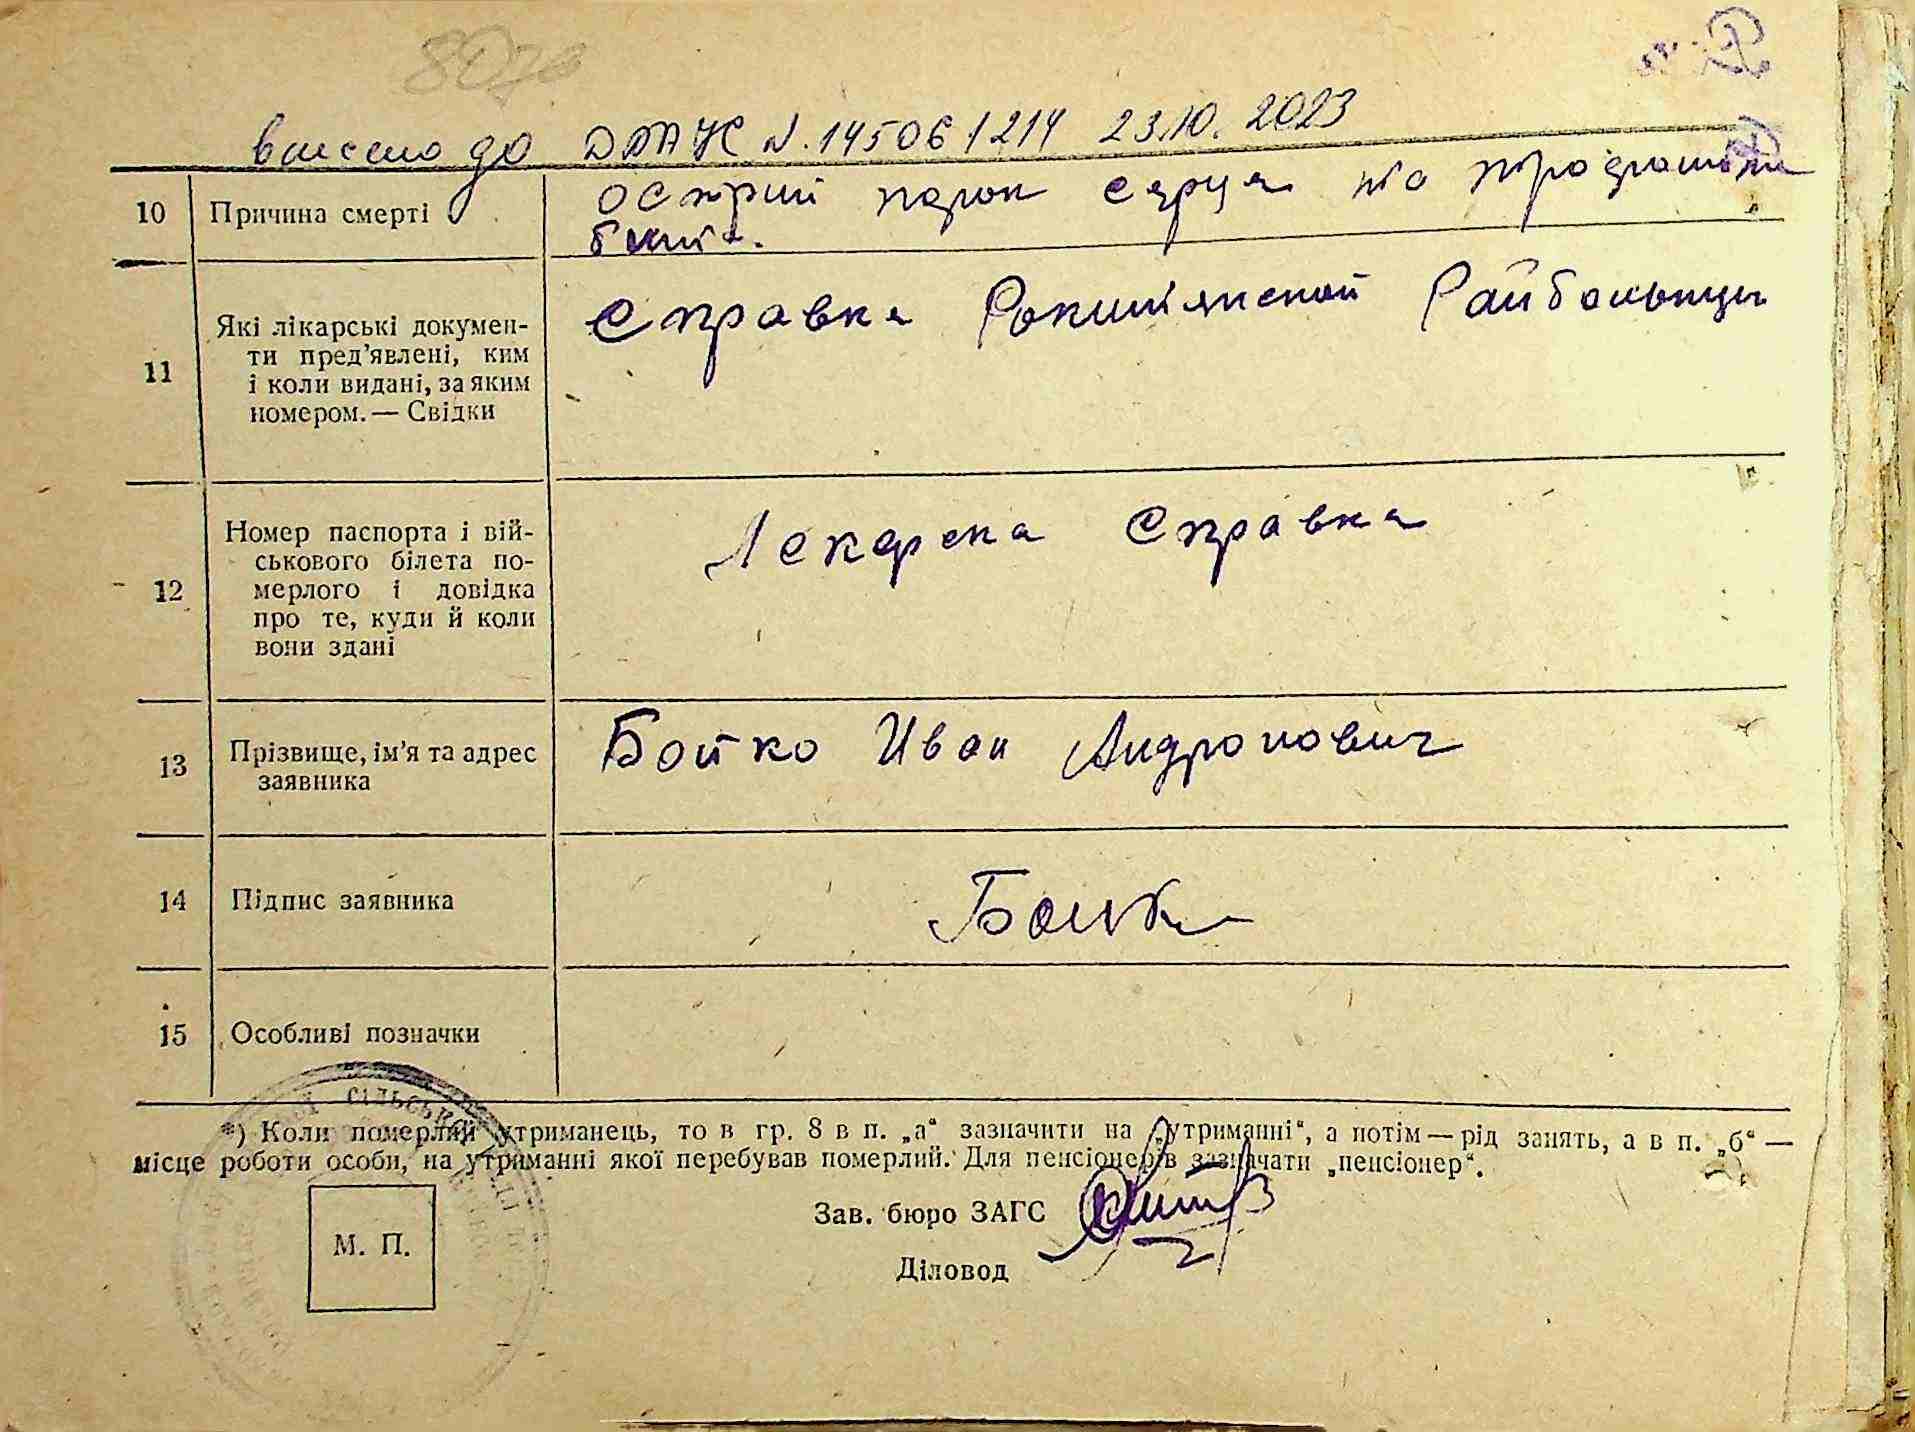 внесено до ДРАЦС N. 145061214 23.10.2023
10 Причина смерті
острий порок серця
11 Які лікарські докумен-
ти пред’явлені, ким
і коли видані, за яким
номером. — Свідки
Справка Райбольници
12 Номер паспорта і вій-
ськового білета по-
мерлого і довідка
про те, куди й коли
вони здані
Лекарска Справка
13 Прізвище, ім’я та адрес
заявника
Бойко Иван Андронович
14 Підпис заявника
Бойко
15 Особливі позначки
*) Коли померлий утриманець, то в гр. 8 в п. „а“ зазначити на „утриманні“, а потім — рід занять, а в п. „б“ —
місце роботи особи, на утриманні якої перебував померлий. Для пенсіонерів зазначати „пенсіонер“.
Зав. бюро ЗАГС
Діловод
М. П.